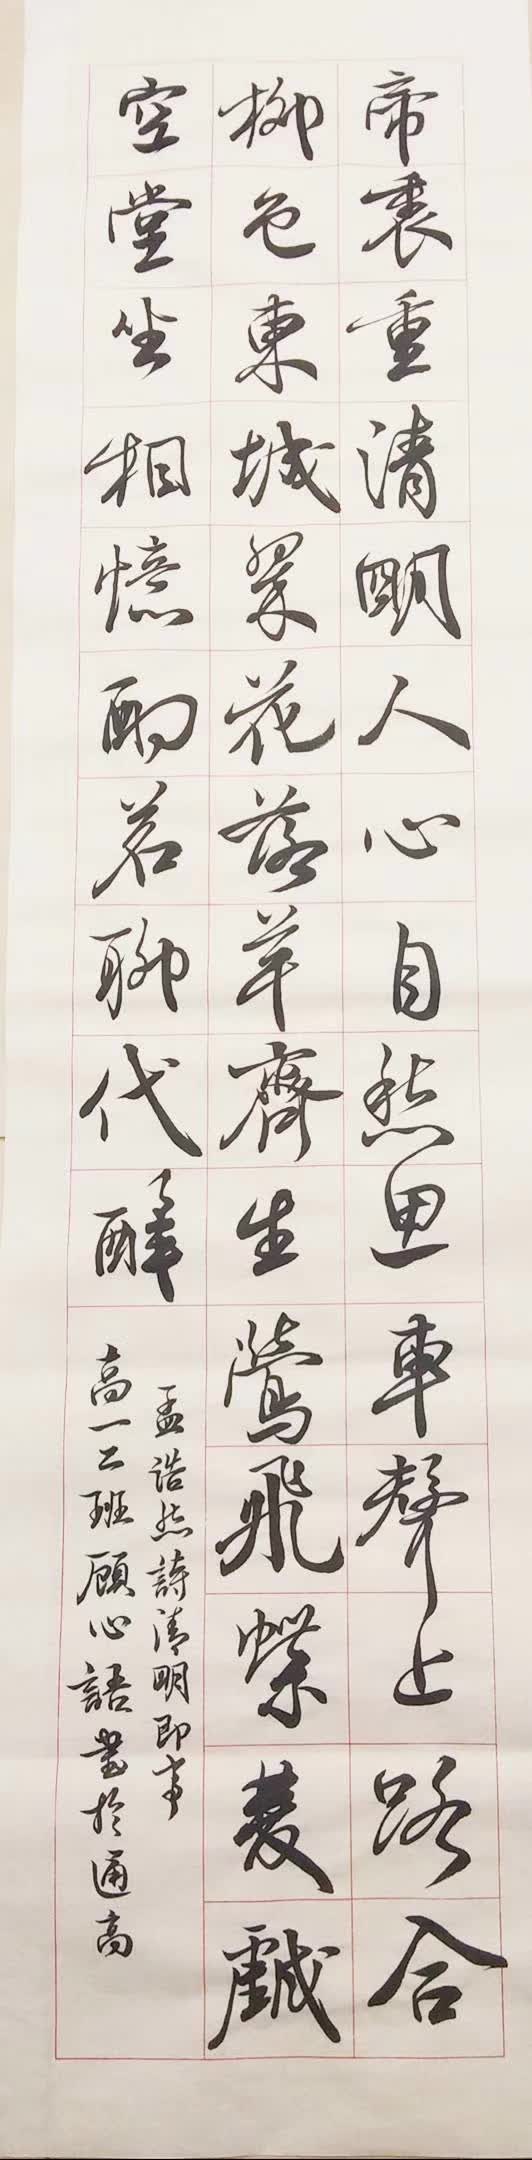 帝裏重清明人心自愁思車聲上路合
柳色東城翠花落草齊生鶯飛蝶雙戲
空堂坐相憶酌茗聊代醉
孟浩然詩清明即事
高一二班顧心語書於通高